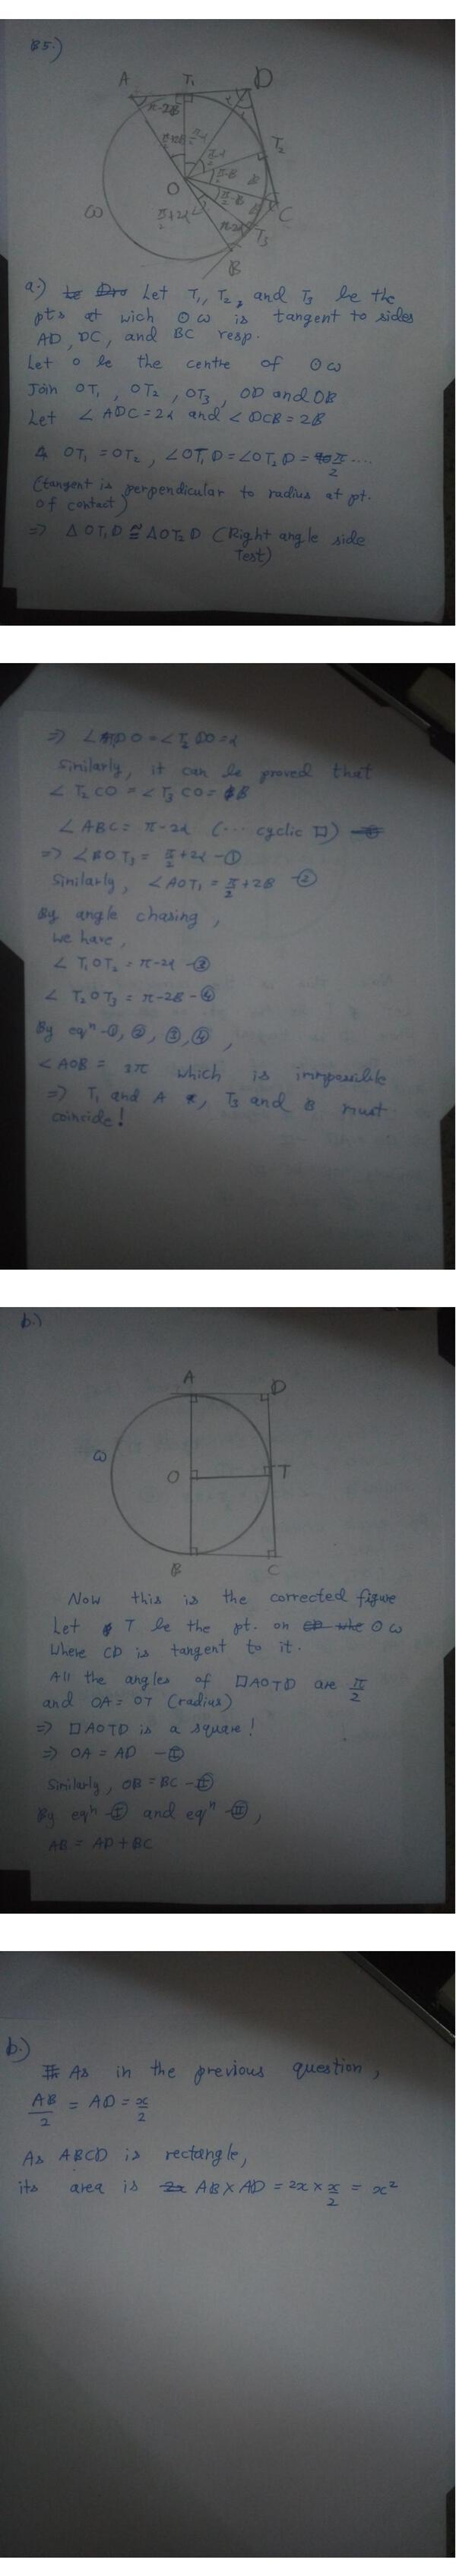 B5.)
A
T₁
D
π-2B
π/2-α
π/2-α
T₂
O
π/2-B
π/2-B
B
B
C
ω
π/2+2α
T₃
B
a.) Let T₁, T₂, and T₃ be the
pts at wich ⊙ω is tangent to sides
AD, DC, and BC resp.
Let O be the centre of ⊙ω
Join OT₁, OT₂, OT₃, OD and OB
Let ∠ADC = 2α and ∠DCB = 2B
OT₁ = OT₂, ∠OT₁D = ∠OT₂D = π/2 ....
(tangent is perpendicular to radius at pt.
of contact)
⇒ ΔOT₁D ≅ ΔOT₂D (Right angle side
Test)
⇒ ∠T₁DO = ∠T₂DO = α
Similarly, it can be proved that
∠T₂CO = ∠T₃CO = B
∠ABC = π-2α (... cyclic □)
⇒ ∠BOT₃ = π/2+2α -①
Similarly, ∠AOT₁ = π/2+2B -②
By angle chasing,
we have,
∠T₁OT₂ = π-2α -③
∠T₂OT₃ = π-2B -④
By eqⁿ -①, ②, ③, ④,
∠AOB = 3π which is immpossible
⇒ T₁ and A, T₃ and B must
coincide!
b.)
A
D
ω
O
T
B
C
Now this is the corrected figure
Let T be the pt. on ⊙ω
Where CD is tangent to it.
All the angles of □AOTD are π/2
and OA = OT (radius)
⇒ □AOTD is a square!
⇒ OA = AD -Ⓘ
Similarly, OB = BC -Ⓘ︎Ⓘ
By eqⁿ -Ⓘ and eqⁿ -Ⓘ︎Ⓘ,
AB = AD + BC
b.)
As in the previous question,
AB/2 = AD = x/2
As ABCD is rectangle,
its area is AB × AD = 2x × x/2 = x²